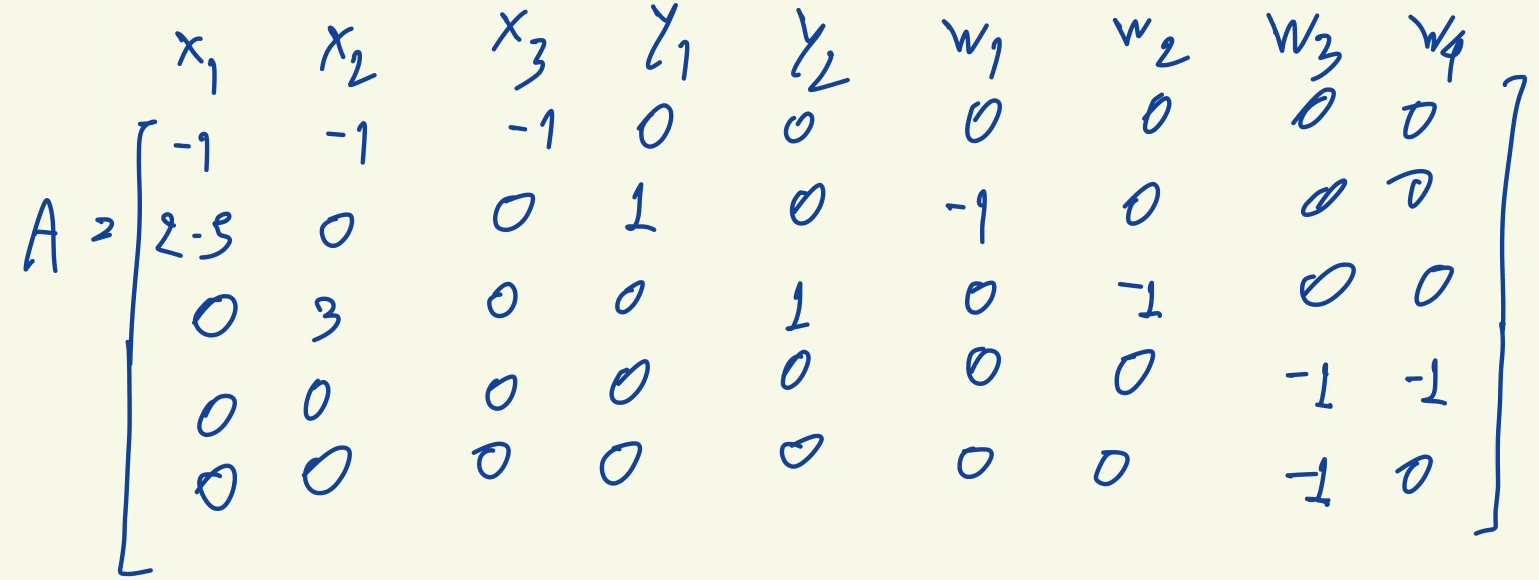 x₁ x₂ x₃ y₁ y₂ w₁ w₂ w₃ w₄
-1 -1 -1 0 0 0 0 0 0
A = 2.5 0 0 1 0 -1 0 0 0
0 3 0 0 1 0 -1 0 0
0 0 0 0 0 0 0 -1 -1
0 0 0 0 0 0 0 -1 0